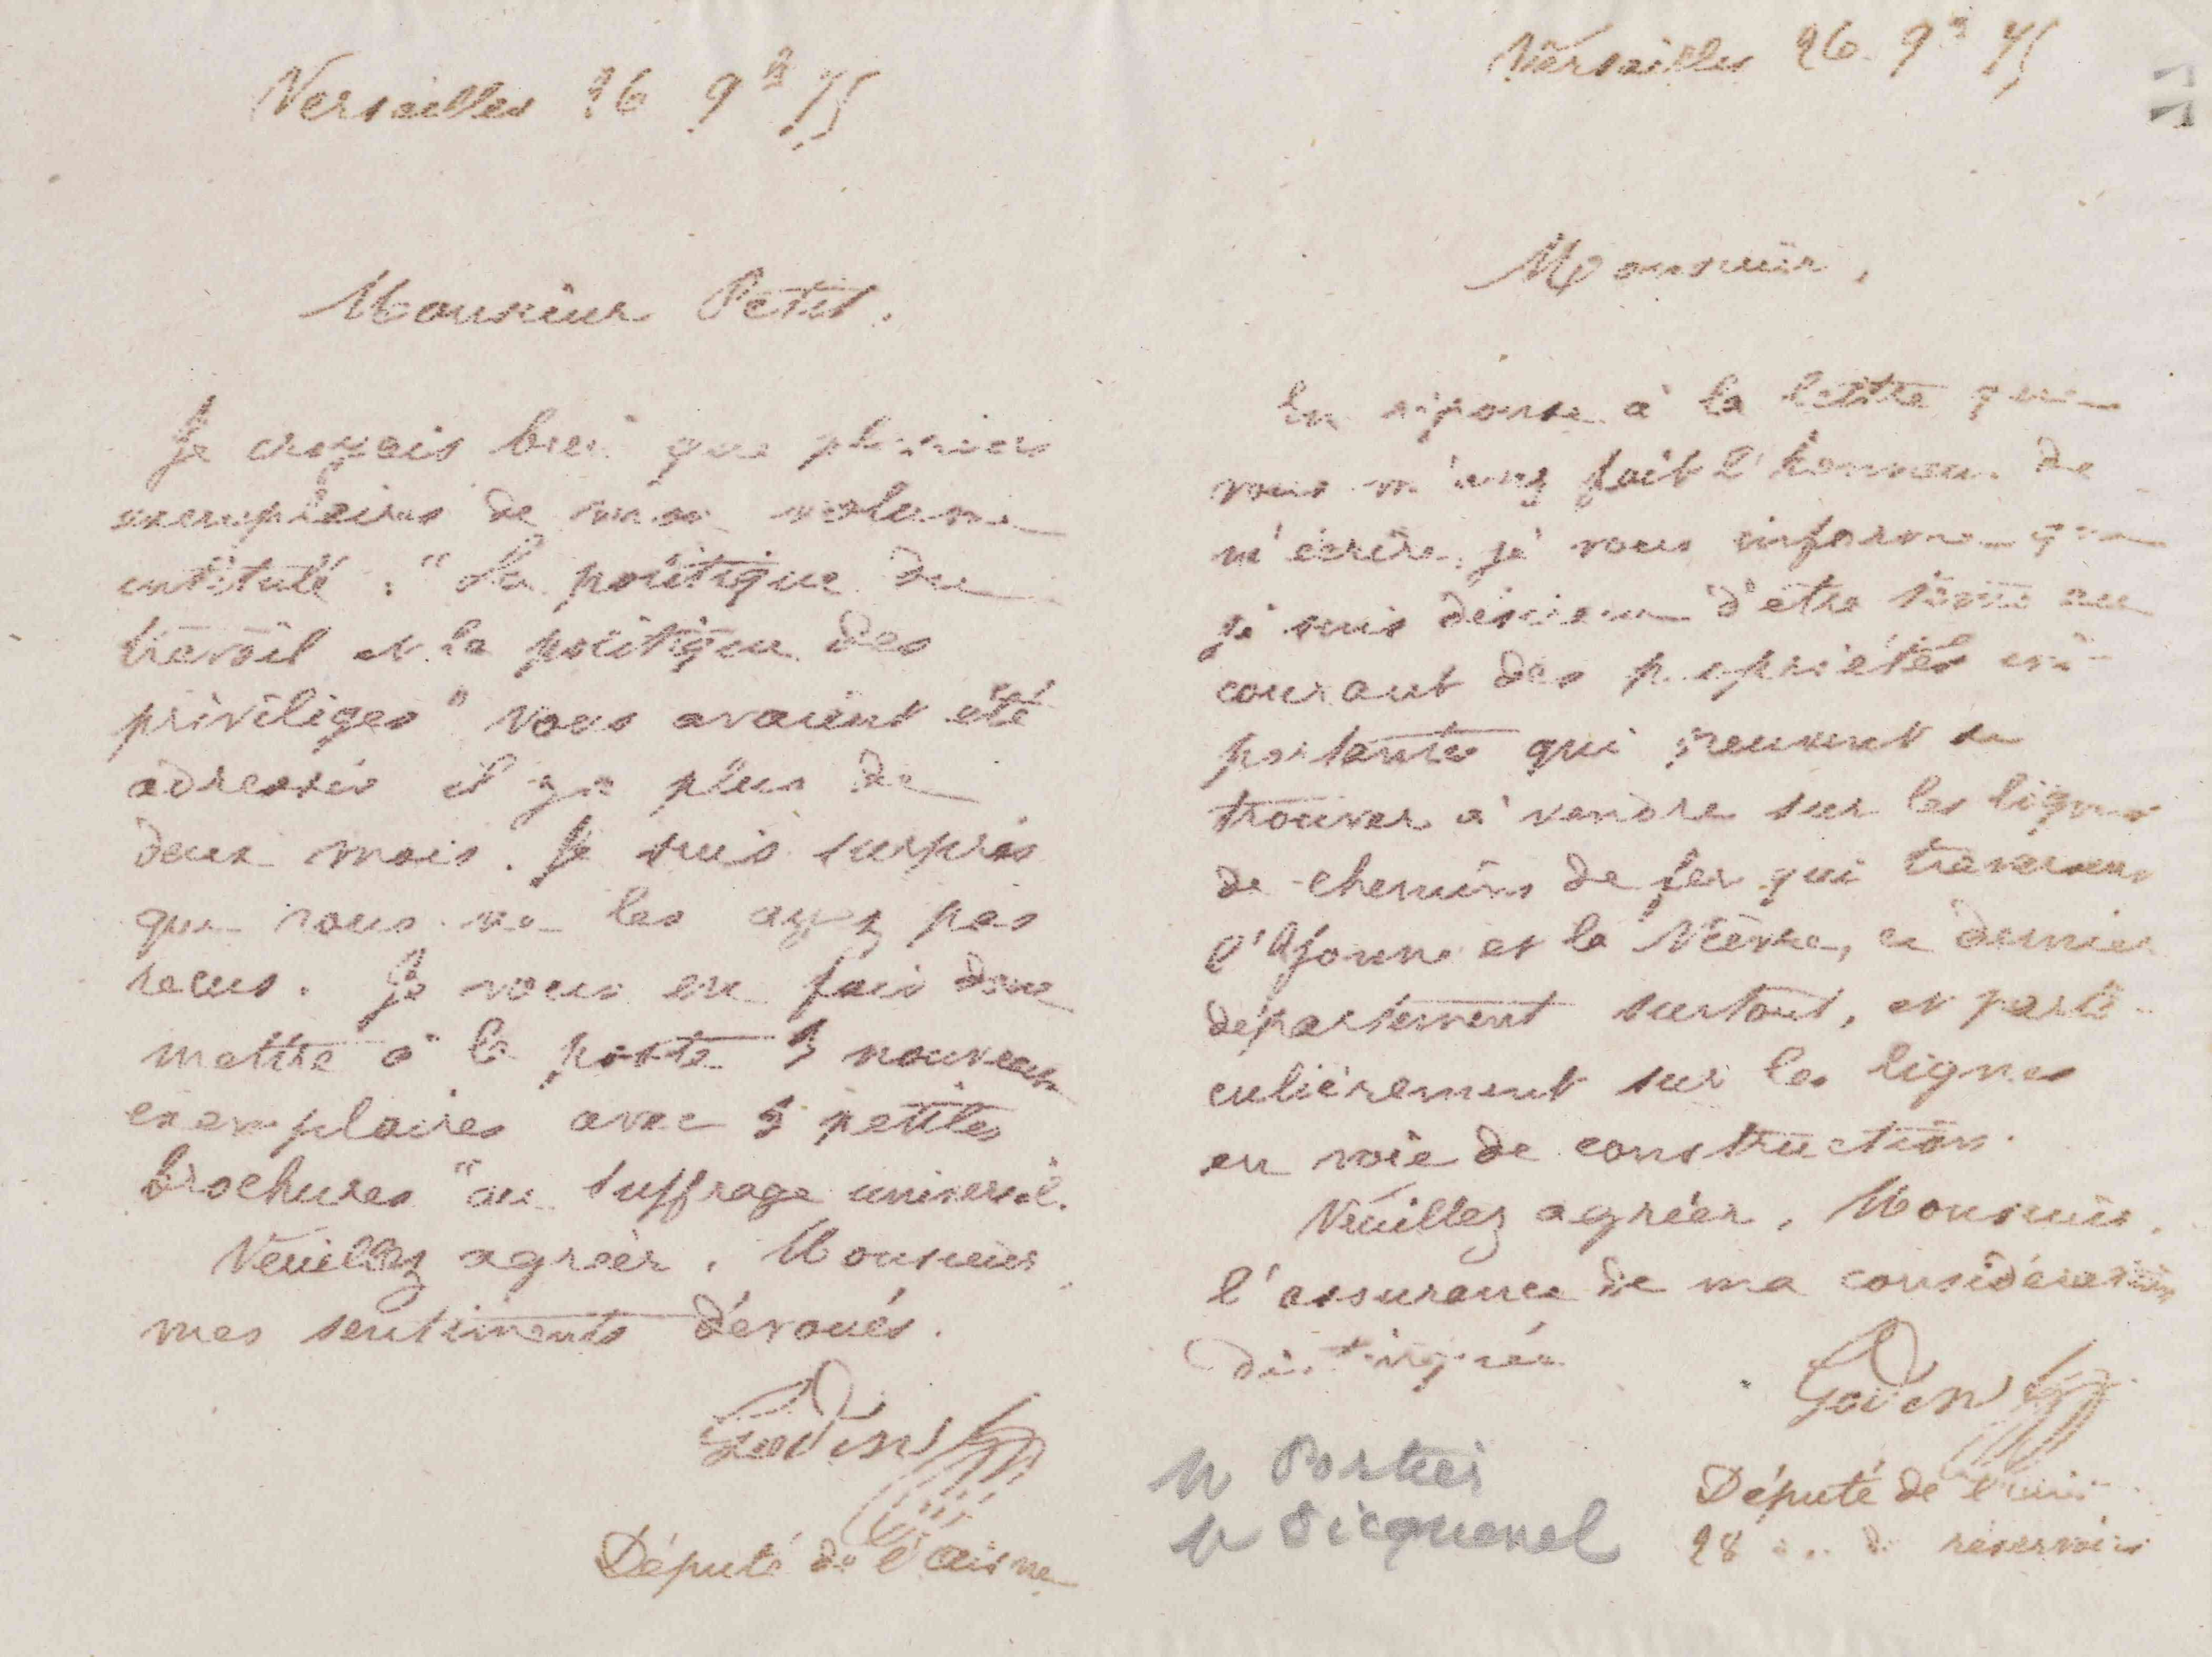 Versailles 26 9bre 75
Monsieur Petit.
Je croyais bien que plusieurs
exemplaires de mon volume
intitulé : "La politique du
travail et la politique des
priviliges" vous avaient été
adressés il y a plus de
deux mois. Je suis surpris
que vous ne les ayez pas
recus. Je vous en fais donc
mettre à la poste 3 nouveaux
exemplaires avec 3 petites
brochures "au suffrage universel.
Veuillez agréer, Monsieur
mes sentiments dévoués.
Godin
Député de l'Aisne
Versailles 26 9bre 75
Monsieur,
En réponse à la lettre que
vous m'avez fait l'honneur de
m'écrire, je vous informe que
je suis désireux d'être tenu au
courant des propriétés im-
portantes qui peuvent se
trouver à vendre sur les lignes
de chemins de fer qui traversent
l'Yonne et la Nièvre, ce dernier
département surtout, et parti-
culièrement sur les lignes
en voie de construction.
Veuillez agréer, Monsieur,
l'assurance de ma considération
distinguée
Godin
Député de l'Aisne
28 rue des réservoirs
M Portier
M Sicquenel